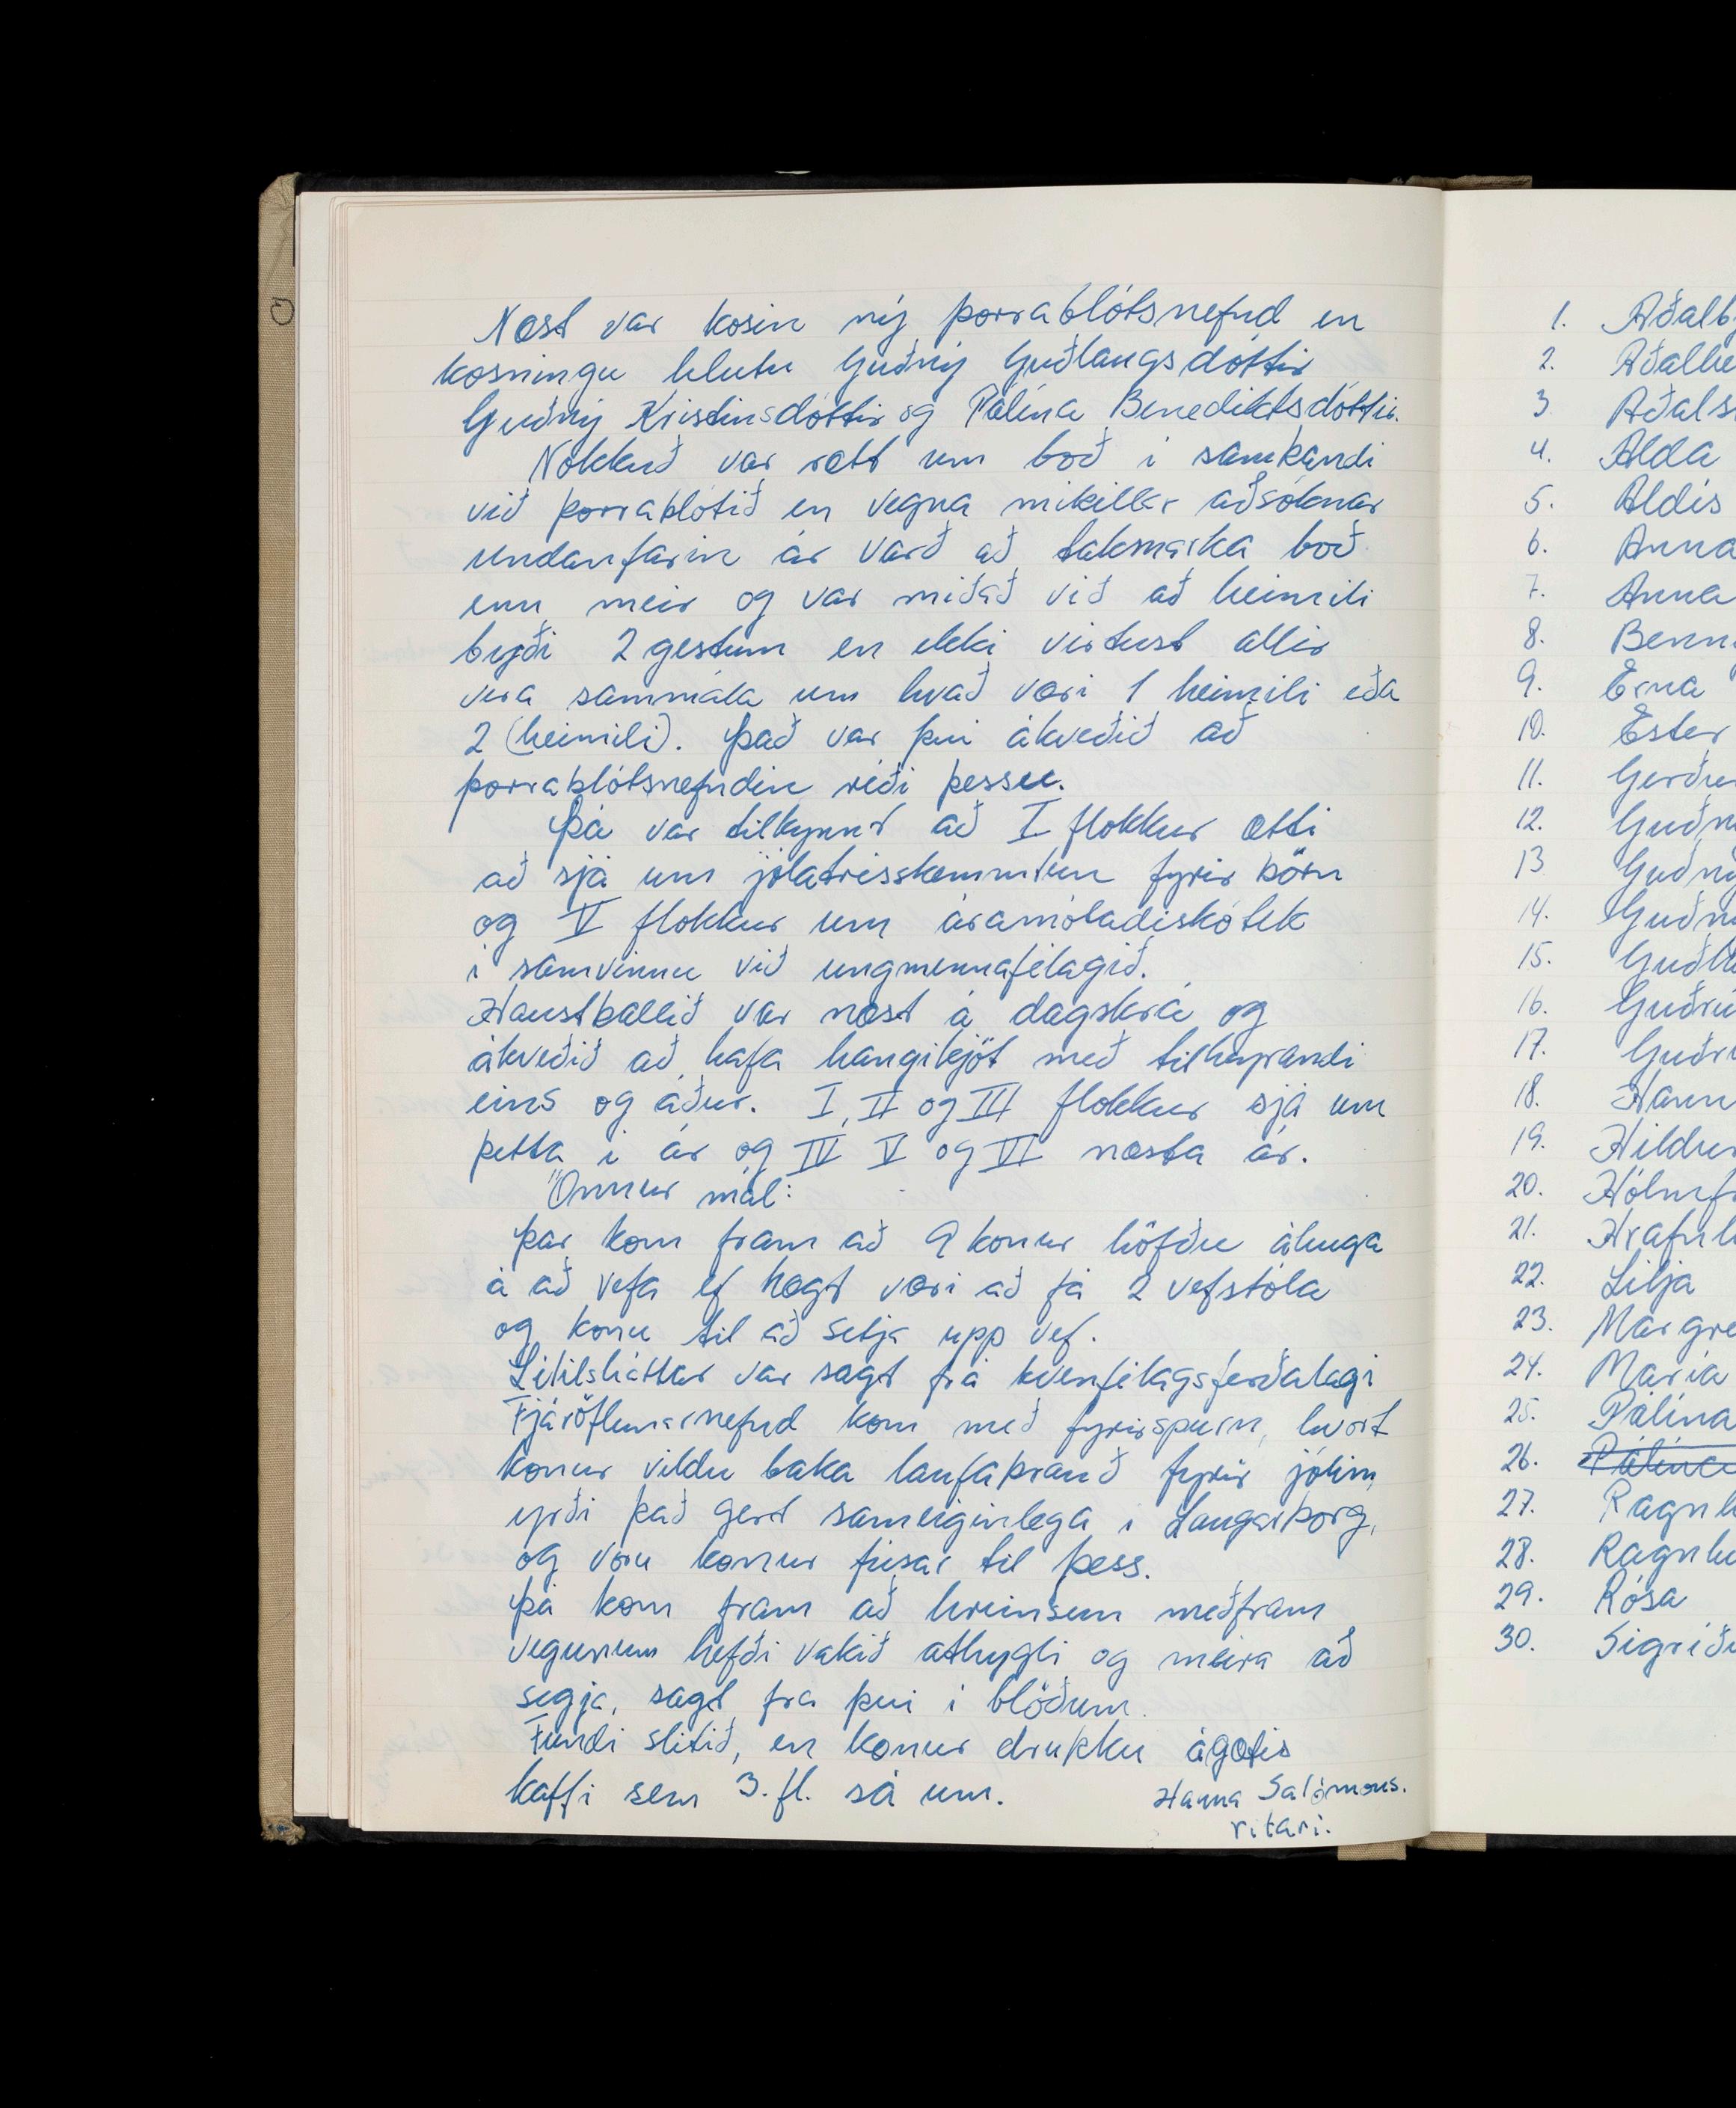 Næst var kosin ný þorrablótsnefnd en
kosningu hlutu Guðný Guðlaugsdóttir
Guðný Kristinsdóttir og Pálína Benediktsdóttir.
Nokkuð var rætt um boð í sambandi
við þorrablótið en vegna mikillar aðsóknar
undanfarin ár varð að takmarka boð
enn meir og var miðað við að heimili
byði 2 gestum en ekki virtust allir
vera sammála um hvað væri 1 heimili eða
2 (heimili). Það var því ákveðið að
þorrablótsnefndin réði þessu.
Þá var tilkynnt að I flokkur ætti
að sjá um jólatrésskemmtun fyrir börn
og V flokkur um áramótadiskótek
í samvinnu við ungmennafélagið.
Haustballið var næst á dagskrá og
ákveðið að hafa hangikjöt með tilheyrandi
eins og áður. I, II og III flokkur sjá um
þetta í ár og IV V og VI næsta ár.
Önnur mál:
Þar kom fram að 9 konur höfðu áhuga
á að vefa ef hægt væri að fá 2 vefstóla
og konu til að setja upp vef.
Lítilsháttar var sagt frá kvenfélagsferðalagi
Fjáröflunarnefnd kom með fyrirspurn, hvort
konur vildu baka laufabrauð fyrir jólin,
yrði það gert sameiginlega í Laugarborg,
og voru konur fúsar til þess.
Þá kom fram að hreinsun meðfram
vegunum hefði vakið athygli og meira að
segja, sagt frá því í blöðum.
Fundi slitið, en konur drukku ágætis
kaffi sem 3. fl. sá um.
Hanna Salómons.
ritari.
1. Aðalb
2. Aðalhe
3 Aðals
4. Alda
5. Aldís
6. Anna
7. Anna
8. Benn
9. Erna
10. Ester
11. Gerðu
12. Guðn
13 Guðný
14. Guðn
15. Guðl
16. Guðrú
17. Guðr
18. Hann
19. Hildur
20. Hólmf
21. Hrafnh
22. Lilja
23. Margré
24. María
25. Pálína
26. Pálína
27. Ragnh
28. Ragnh
29. Rósa
30. Sigríðu